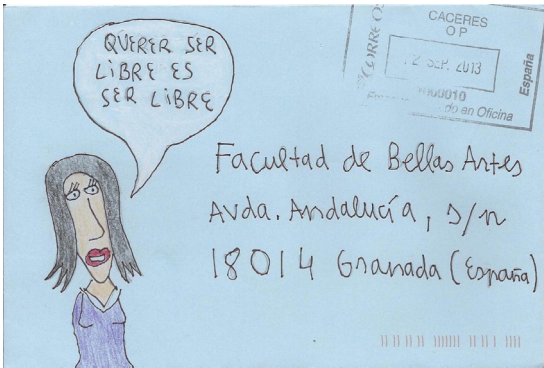 QUERER SER
LIBRE ES
SER LIBRE
CORREOS
CACERES
O P
SEP. 2013
España
en Oficina
Facultad de Bellas Artes
Avda. Andalucía, s/n
18014 Granada (España)